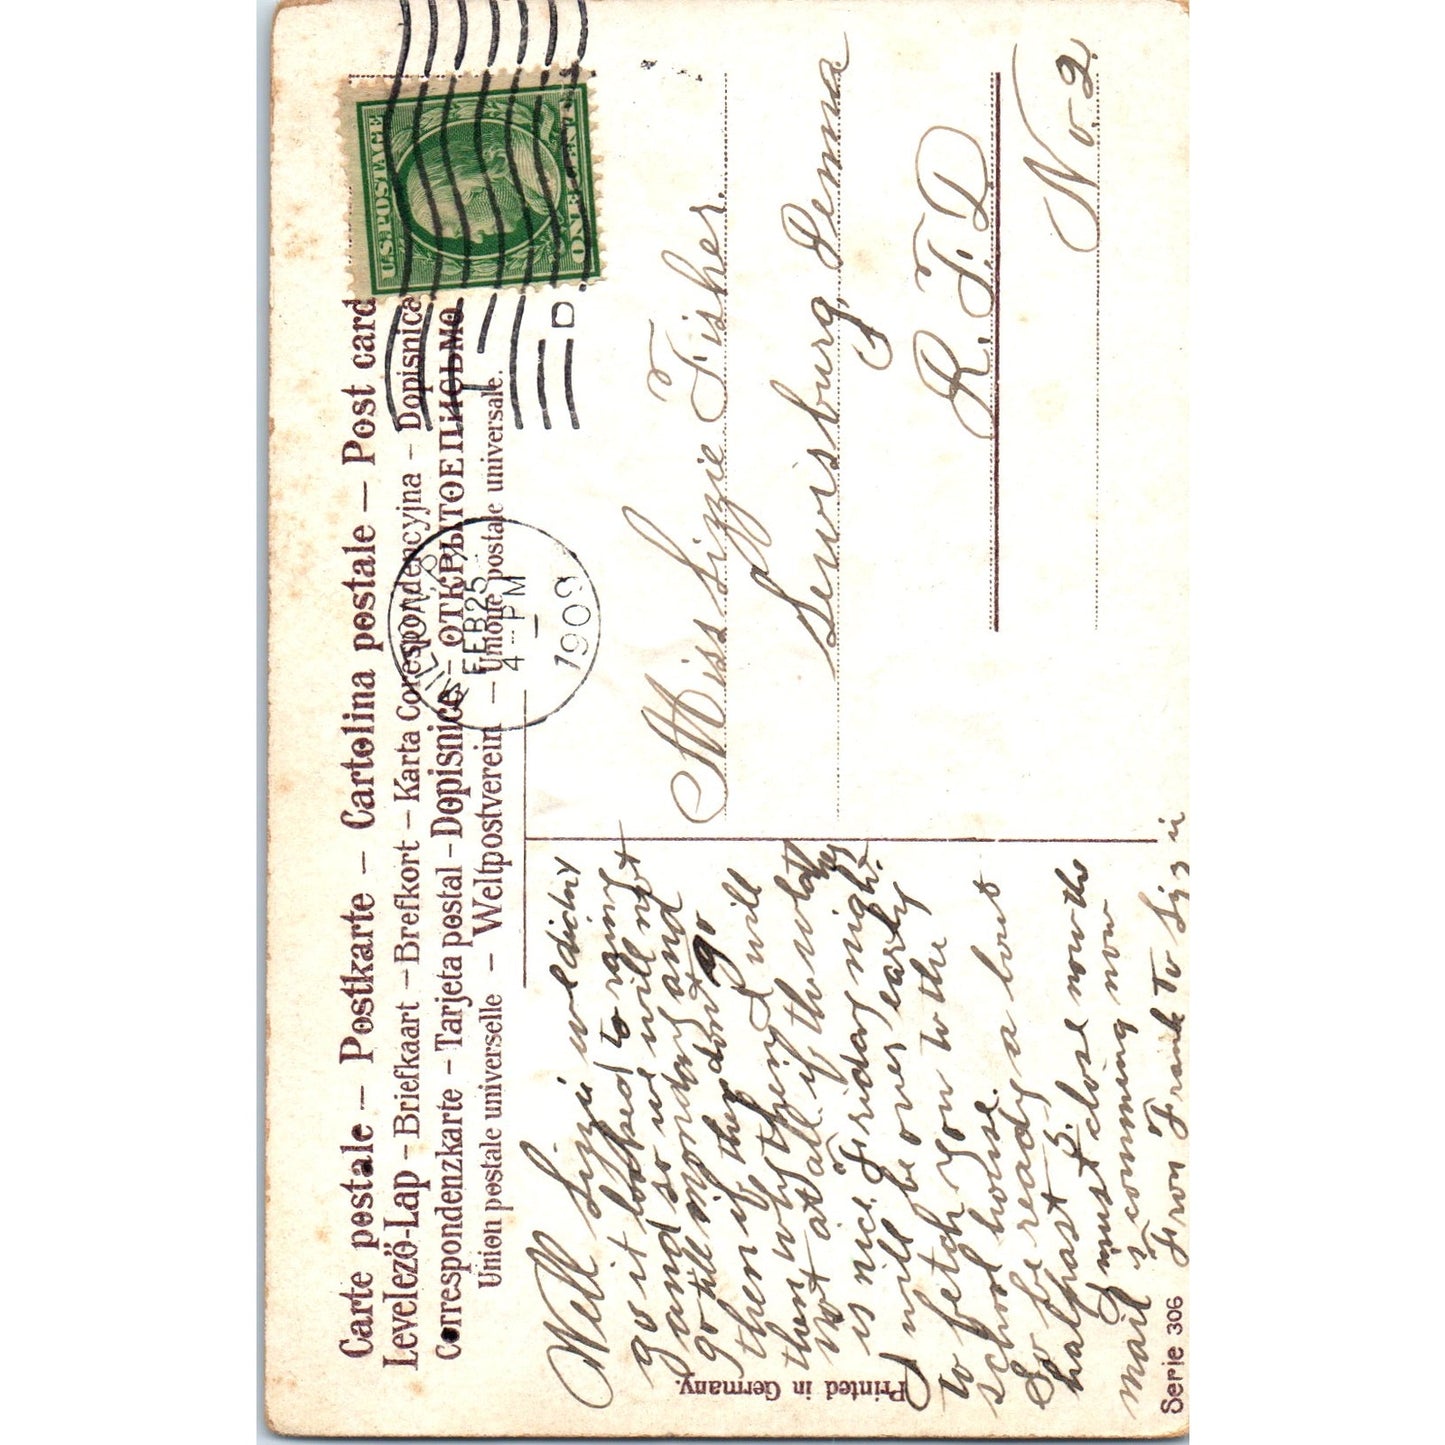 Carte postale – Postkarte – Cartolina postale – Post card
Levelező-Lap – Briefkaart – Brefkort – Karta Corespondencyjna – Dopisnica
Correspondenzkarte – Tarjeta postal – Dopisnice – ОТКРЫТОЕ ПИСЬМО
Union postale universelle – Weltpostverein – Unione postale universale.
U.S. POSTAGE
ONE CENT
MILTON, PA
FEB 25
4 - PM
1909
D
Well Lizzie we didnt
go it looked to rainy
and so we will not
go till monday and
then if they dont go
then why then I will
not at all if the whather
is nice Friday night.
I will be over early
to fetch you to the
school house.
So be ready a bout
half past 5.
I must close now the
mail is comming now
From Frank To Lizzie
Miss Lizzie Fisher.
Lewisburg, Penna
R. F. D
No. 2.
Printed in Germany.
Serie 306